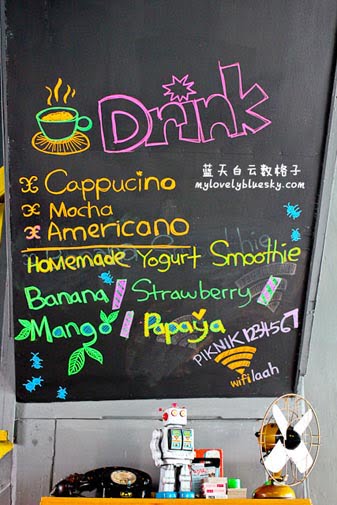 Drink
蓝天白云数格子
mylovelybluesky.com
Cappucino
Mocha
Americano
Homemade Yogurt Smoothie
Banana Strawberry
Mango Papaya
PIKNIK1234567
wifi laah